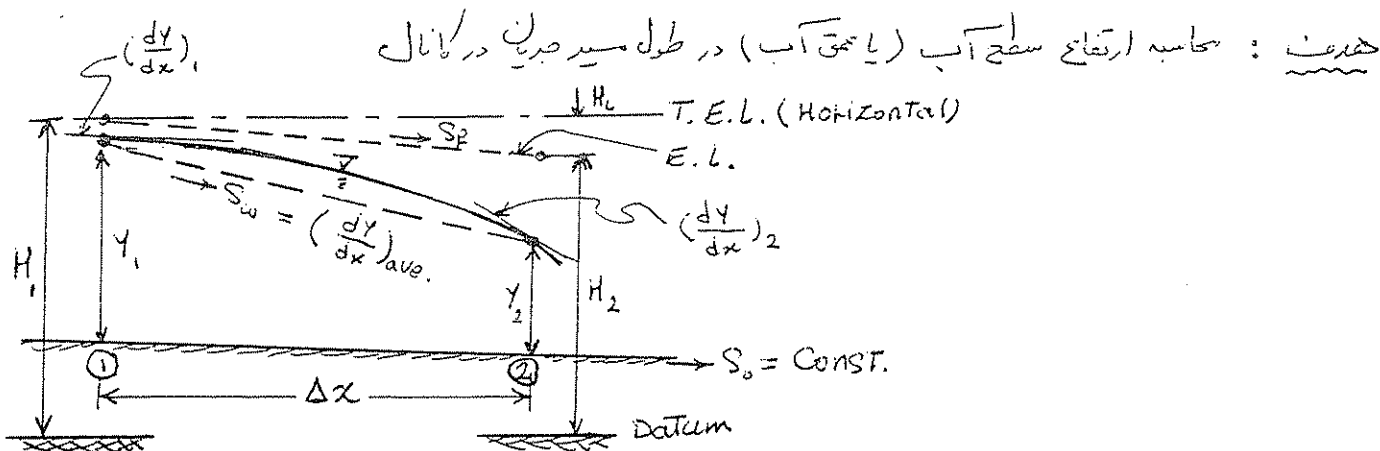 هدف : محاسبه ارتفاع سطح آب (یا عمق آب) در طول مسیر جریان در کانال
(dy/dx)₁
H_L
T.E.L. (Horizontal)
S_f
E.L.
S_w = (dy/dx)ave.
(dy/dx)₂
H₁
Y₁
Y₂
H₂
① ②
S₀ = Const.
Δx
Datum